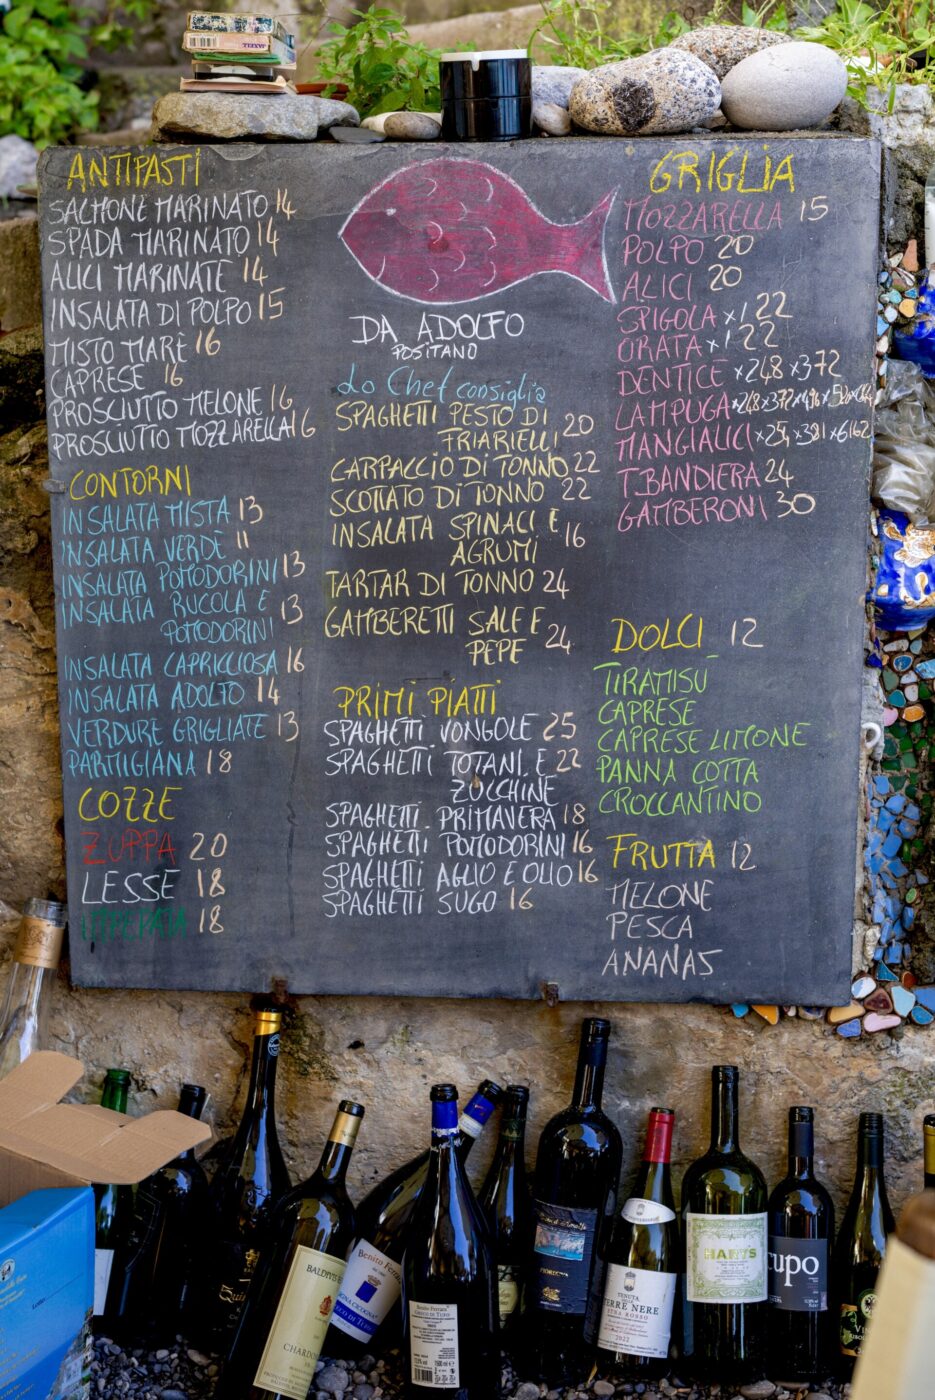 ANTIPASTI
SALMONE MARINATO 14
SPADA MARINATO 14
ALICI MARINATE 14
INSALATA DI POLPO 15
MISTO MARE 16
CAPRESE 16
PROSCIUTTO MELONE 16
PROSCIUTTO MOZZARELLA 16
CONTORNI
INSALATA MISTA 13
INSALATA VERDE 11
INSALATA POMODORINI 13
INSALATA RUCOLA E
POMODORINI 13
INSALATA CAPRICCIOSA 16
INSALATA ADOLFO 14
VERDURE GRIGLIATE 13
PARTIGIANA 18
COZZE
ZUPPA 20
LESSE 18
IMPEPATA 18
DA ADOLFO
POSITANO
Lo Chef consiglia
SPAGHETTI PESTO DI
FRIARIELLI 20
CARPACCIO DI TONNO 22
SCOTTATO DI TONNO 22
INSALATA SPINACI E
AGRUMI 16
TARTAR DI TONNO 24
GAMBERETTI SALE E
PEPE 24
PRIMI PIATTI
SPAGHETTI VONGOLE 25
SPAGHETTI TOTANI E 22
ZUCCHINE
SPAGHETTI PRIMAVERA 18
SPAGHETTI POMODORINI 16
SPAGHETTI AGLIO E OLIO 16
SPAGHETTI SUGO 16
GRIGLIA
MOZZARELLA 15
POLPO 20
ALICI 20
SPIGOLA x1 22
ORATA x1 22
DENTICE x248 x372
LAMPUGA
MANGIALICI
T.BANDIERA 24
GAMBERONI 30
DOLCI 12
TIRAMISÙ
CAPRESE
CAPRESE LIMONE
PANNA COTTA
CROCCANTINO
FRUTTA 12
MELONE
PESCA
ANANAS
BALDHYS
CHARDON
Benito Ferrara
Benito Ferrara
TENUTA
TERRE NERE
ETNA ROSSO
2022
HARTS
upo